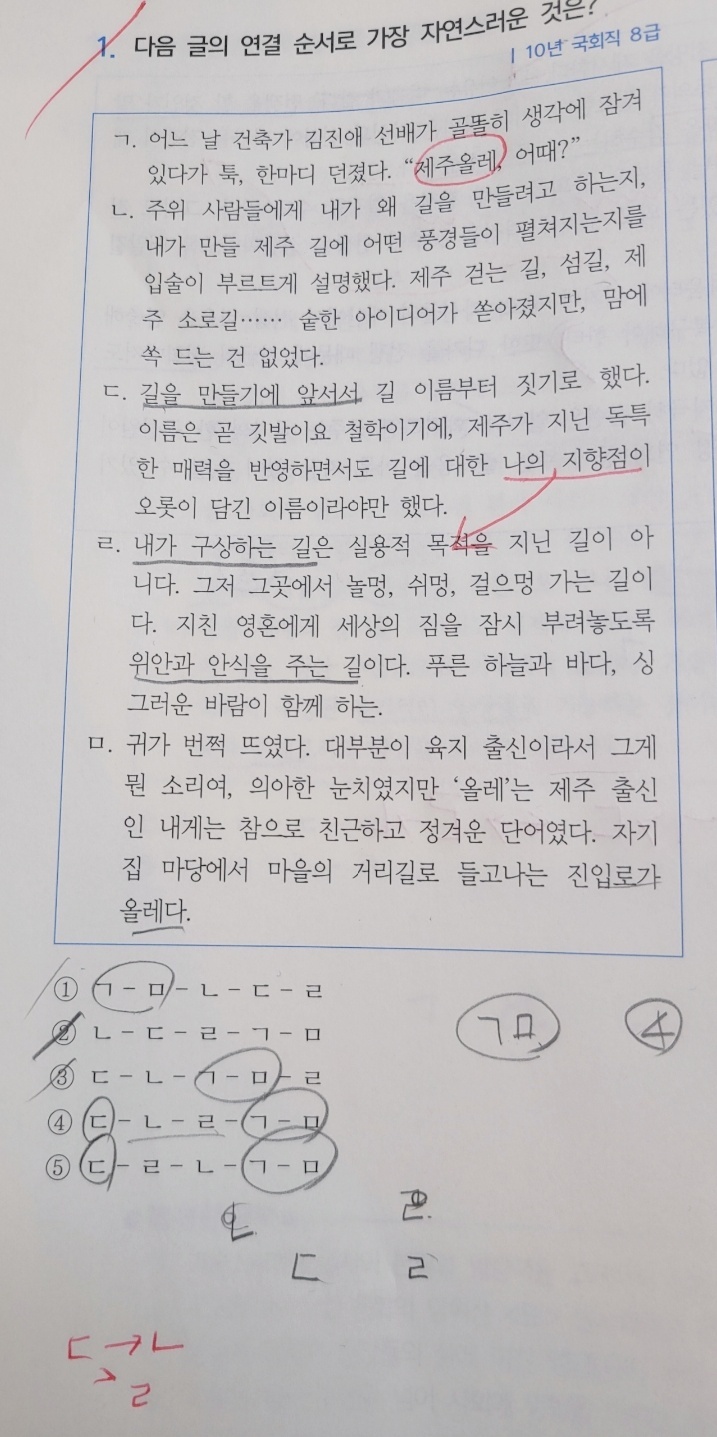 1. 다음 글의 연결 순서로 가장 자연스러운 것은?
| 10년 국회직 8급
ㄱ. 어느 날 건축가 김진애 선배가 골똘히 생각에 잠겨
있다가 툭, 한마디 던졌다. “제주올레, 어때?”
ㄴ. 주위 사람들에게 내가 왜 길을 만들려고 하는지,
내가 만들 제주 길에 어떤 풍경들이 펼쳐지는지를
입술이 부르트게 설명했다. 제주 걷는 길, 섬길, 제
주 소로길…… 숱한 아이디어가 쏟아졌지만, 맘에
쏙 드는 건 없었다.
ㄷ. 길을 만들기에 앞서서 길 이름부터 짓기로 했다.
이름은 곧 깃발이요 철학이기에, 제주가 지닌 독특
한 매력을 반영하면서도 길에 대한 나의 지향점이
오롯이 담긴 이름이라야만 했다.
ㄹ. 내가 구상하는 길은 실용적 목적을 지닌 길이 아
니다. 그저 그곳에서 놀멍, 쉬멍, 걸으멍 가는 길이
다. 지친 영혼에게 세상의 짐을 잠시 부려놓도록
위안과 안식을 주는 길이다. 푸른 하늘과 바다, 싱
그러운 바람이 함께 하는.
ㅁ. 귀가 번쩍 뜨였다. 대부분이 육지 출신이라서 그게
뭔 소리여, 의아한 눈치였지만 ‘올레’는 제주 출신
인 내게는 참으로 친근하고 정겨운 단어였다. 자기
집 마당에서 마을의 거리길로 들고나는 진입로가
올레다.
① ㄱ - ㅁ - ㄴ - ㄷ - ㄹ
② ㄴ - ㄷ - ㄹ - ㄱ - ㅁ
③ ㄷ - ㄴ - ㄱ - ㅁ - ㄹ
④ ㄷ - ㄴ - ㄹ - ㄱ - ㅁ
⑤ ㄷ - ㄹ - ㄴ - ㄱ - ㅁ
ㄱㅁ 4
ㄷ ㄹ
ㄷ → ㄴ
ㄹ